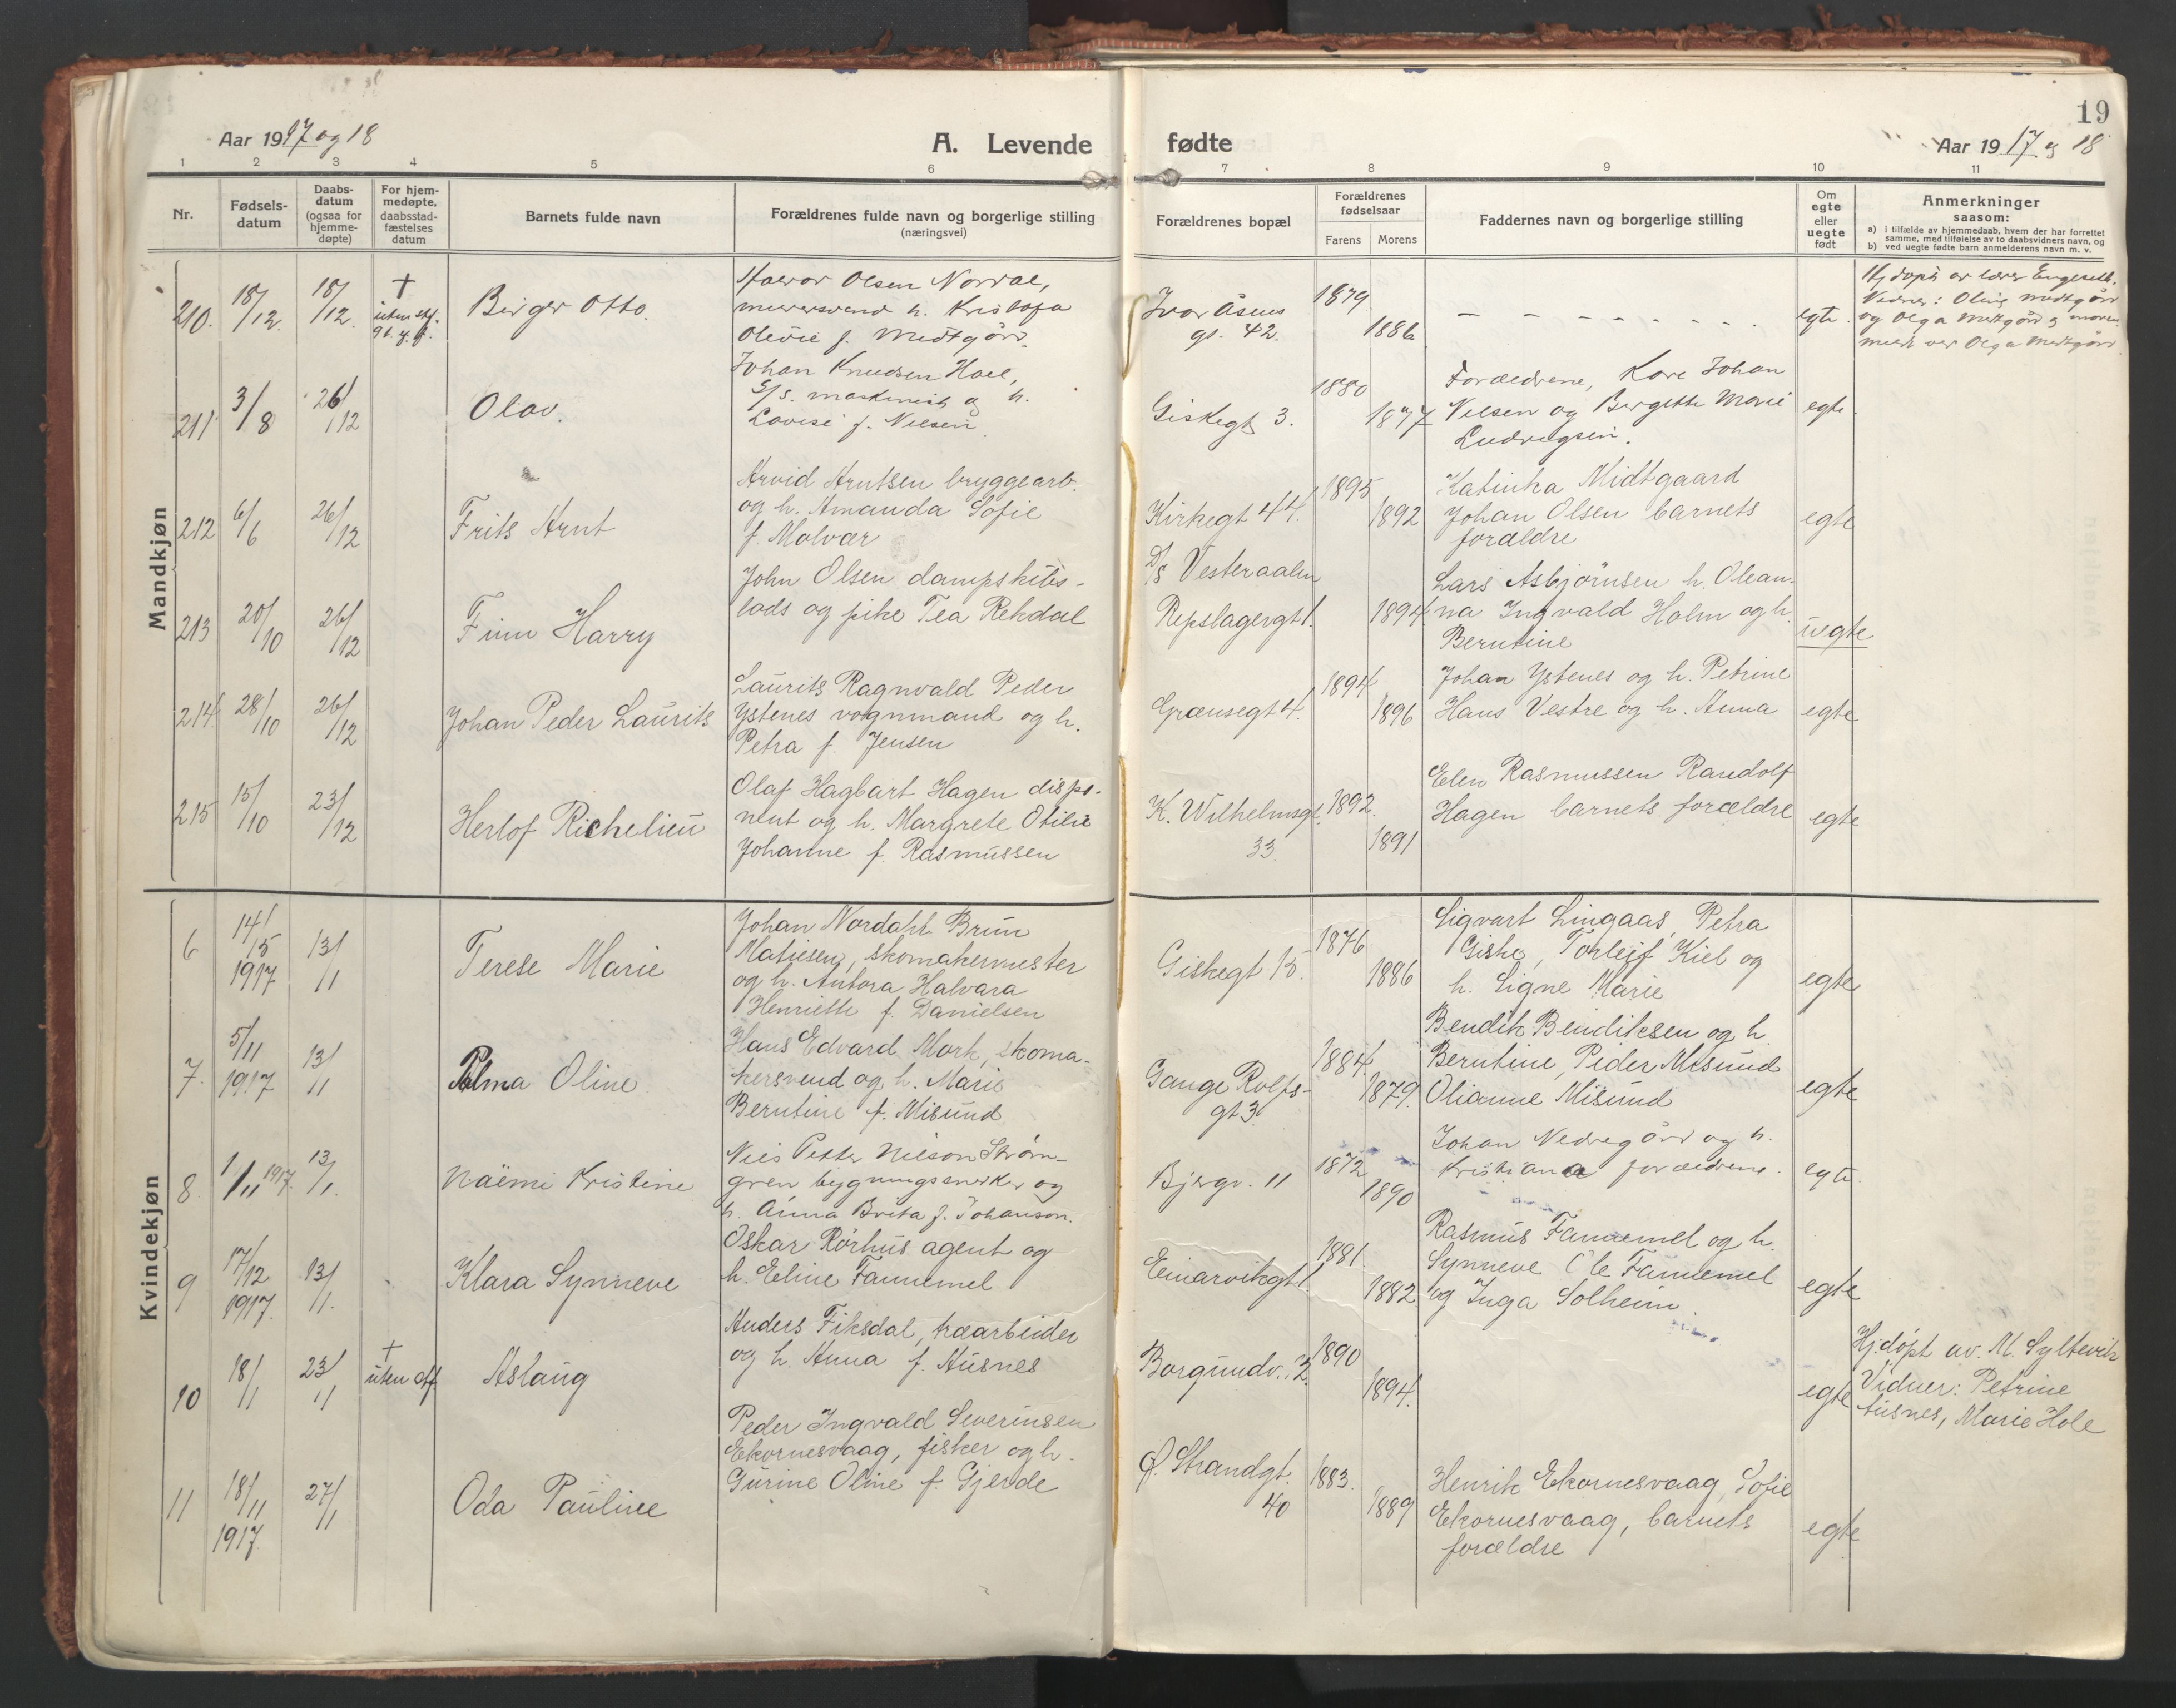 19
Aar 1917 og 18
A. Levende fødte
Aar 1917 og 18
1 2 3 4 5 6 7 8 9 10 11
Nr.
Fødsels-datum
Daabs-datum (ogsaa for hjemme-døpte)
For hjem-medøpte, daabsstad-fæstelses datum
Barnets fulde navn
Forældrenes fulde navn og borgerlige stilling
(næringsvei)
Forældrenes bopæl
Forældrenes fødselsaar
Farens Morens
Faddernes navn og borgerlige stilling
Om egte eller uegte født
Anmerkninger
saasom:
a) i tilfælde av hjemmedaab, hvem der har forrettet samme, med tilføielse av to daabsvidners navn, og
b) ved uegte fødte barn anmelderens navn m. v.
Mandkjøn
210. 18/12. 18/12. † uten stf.
Birger Otto.
Halvor Olsen Nordal,
murersvend h. Kristofa
Olivie f. Midtgård.
Ivar Åsens
gt. 42.
1879
1886
egte.
Hj.døpt av lærer
Vidner: Oline Midtgård
og Olga Midtgård
211 3/8 26/12
Olav.
Johan Knudsen Hoel,
D/S. maskinist og h.
Lovise f. Nilsen.
Giskegt 3.
1880
1877
Forældrene, Kare Johan
Nilsen og Bergitte Marie
Ludvigsen.
egte.
212 6/6 26/12
Frits Arnt
Arvid Arntsen bryggearb.
og h. Amanda Sofie
f. Molvær
Kirkegt 44.
1895
1892
Katinka Midtgaard
Johan Olsen barnets
forældre
egte
213 20/10 26/12
Finn Harry
John Olsen dampskibs-
lods og pike Tea Rekdal
D/S Vesteraalen
Repslagergt 1.
1894
Lars Asbjørnsen h. Olean-
na Ingvald Holm og h.
Berntine
uegte
214 28/10 26/12
Johan Peder Laurits
Laurits Ragnvald Peder
Ystenes vognmand og h.
Petra f. Jensen
Grænsegt 4.
1894
1896
Johan Ystenes og h. Petrine
Hans Vestre og h. Anna
egte
215 15/10 23/12
Herlof Richelieu
Olaf Hagbart Hagen dispo-
nent og h. Margrete Otilie
Johanne f. Rasmussen
K. Wilhelmsgt.
33.
1892.
1891
Elen Rasmussen Randolf
Hagen barnets forældre
egte
Kvindekjøn
6 14/5 1917 13/1
Terese Marie
Johan Nordahl Brun
Matiesen, skomakermester
og h. Antora Halvara
Henriette f. Danielsen
Giskegt 15.
1876
1886
Sigvart Lingaas, Petra
Giske, Torleif Kiel og
h. Signe Marie
egte
7. 5/11 1917 13/1
Palma Oline
Hans Edvard Mork, skoma-
kersvend og h. Marie
Berntine f. Misund
Gange Rolfs-
gt 3.
1884
1879.
Bendik Bendiksen og h.
Berntine, Peder Misund
Olianne Misund
egte
8. 1/11 1917. 13/1.
Naëmi Kristine
Nils Petter Nilson Strøm-
gren bygningssnekker og
h. Anna Brita f. Johanson.
Bjergv. 11
1872
1890
Johan Nedregård og h.
Kristiana forældrene.
egte.
9 17/12 1917. 13/1.
Klara Synneve
Oskar Rørhus agent og
h. Eline Fannemel
Einarvikgt 1.
1881.
1882.
Rasmus Fannemel og h.
Synneve Ole Fannemel
og Inga Solheim.
egte
10 18/1 23/1 † uten stf.
Aslaug
Anders Fiksdal, træarbeider
og h. Anna f. Husnes
Borgundv. 2.
1890
1894.
egte
Hj.døpt av. M. Syltevik
Vidner: Petrine
Husnes, Marie Hole
11 18/11 1917. 27/1
Oda Pauline
Peder Ingvald Severinsen
Ekornesvaag, fisker og h.
Gurine Oline f. Gjerde
Ø. Strandgt.
40
1883.
1889
Henrik Ekornesvaag, Sofie
Ekornesvaag, barnets
forældre
egte